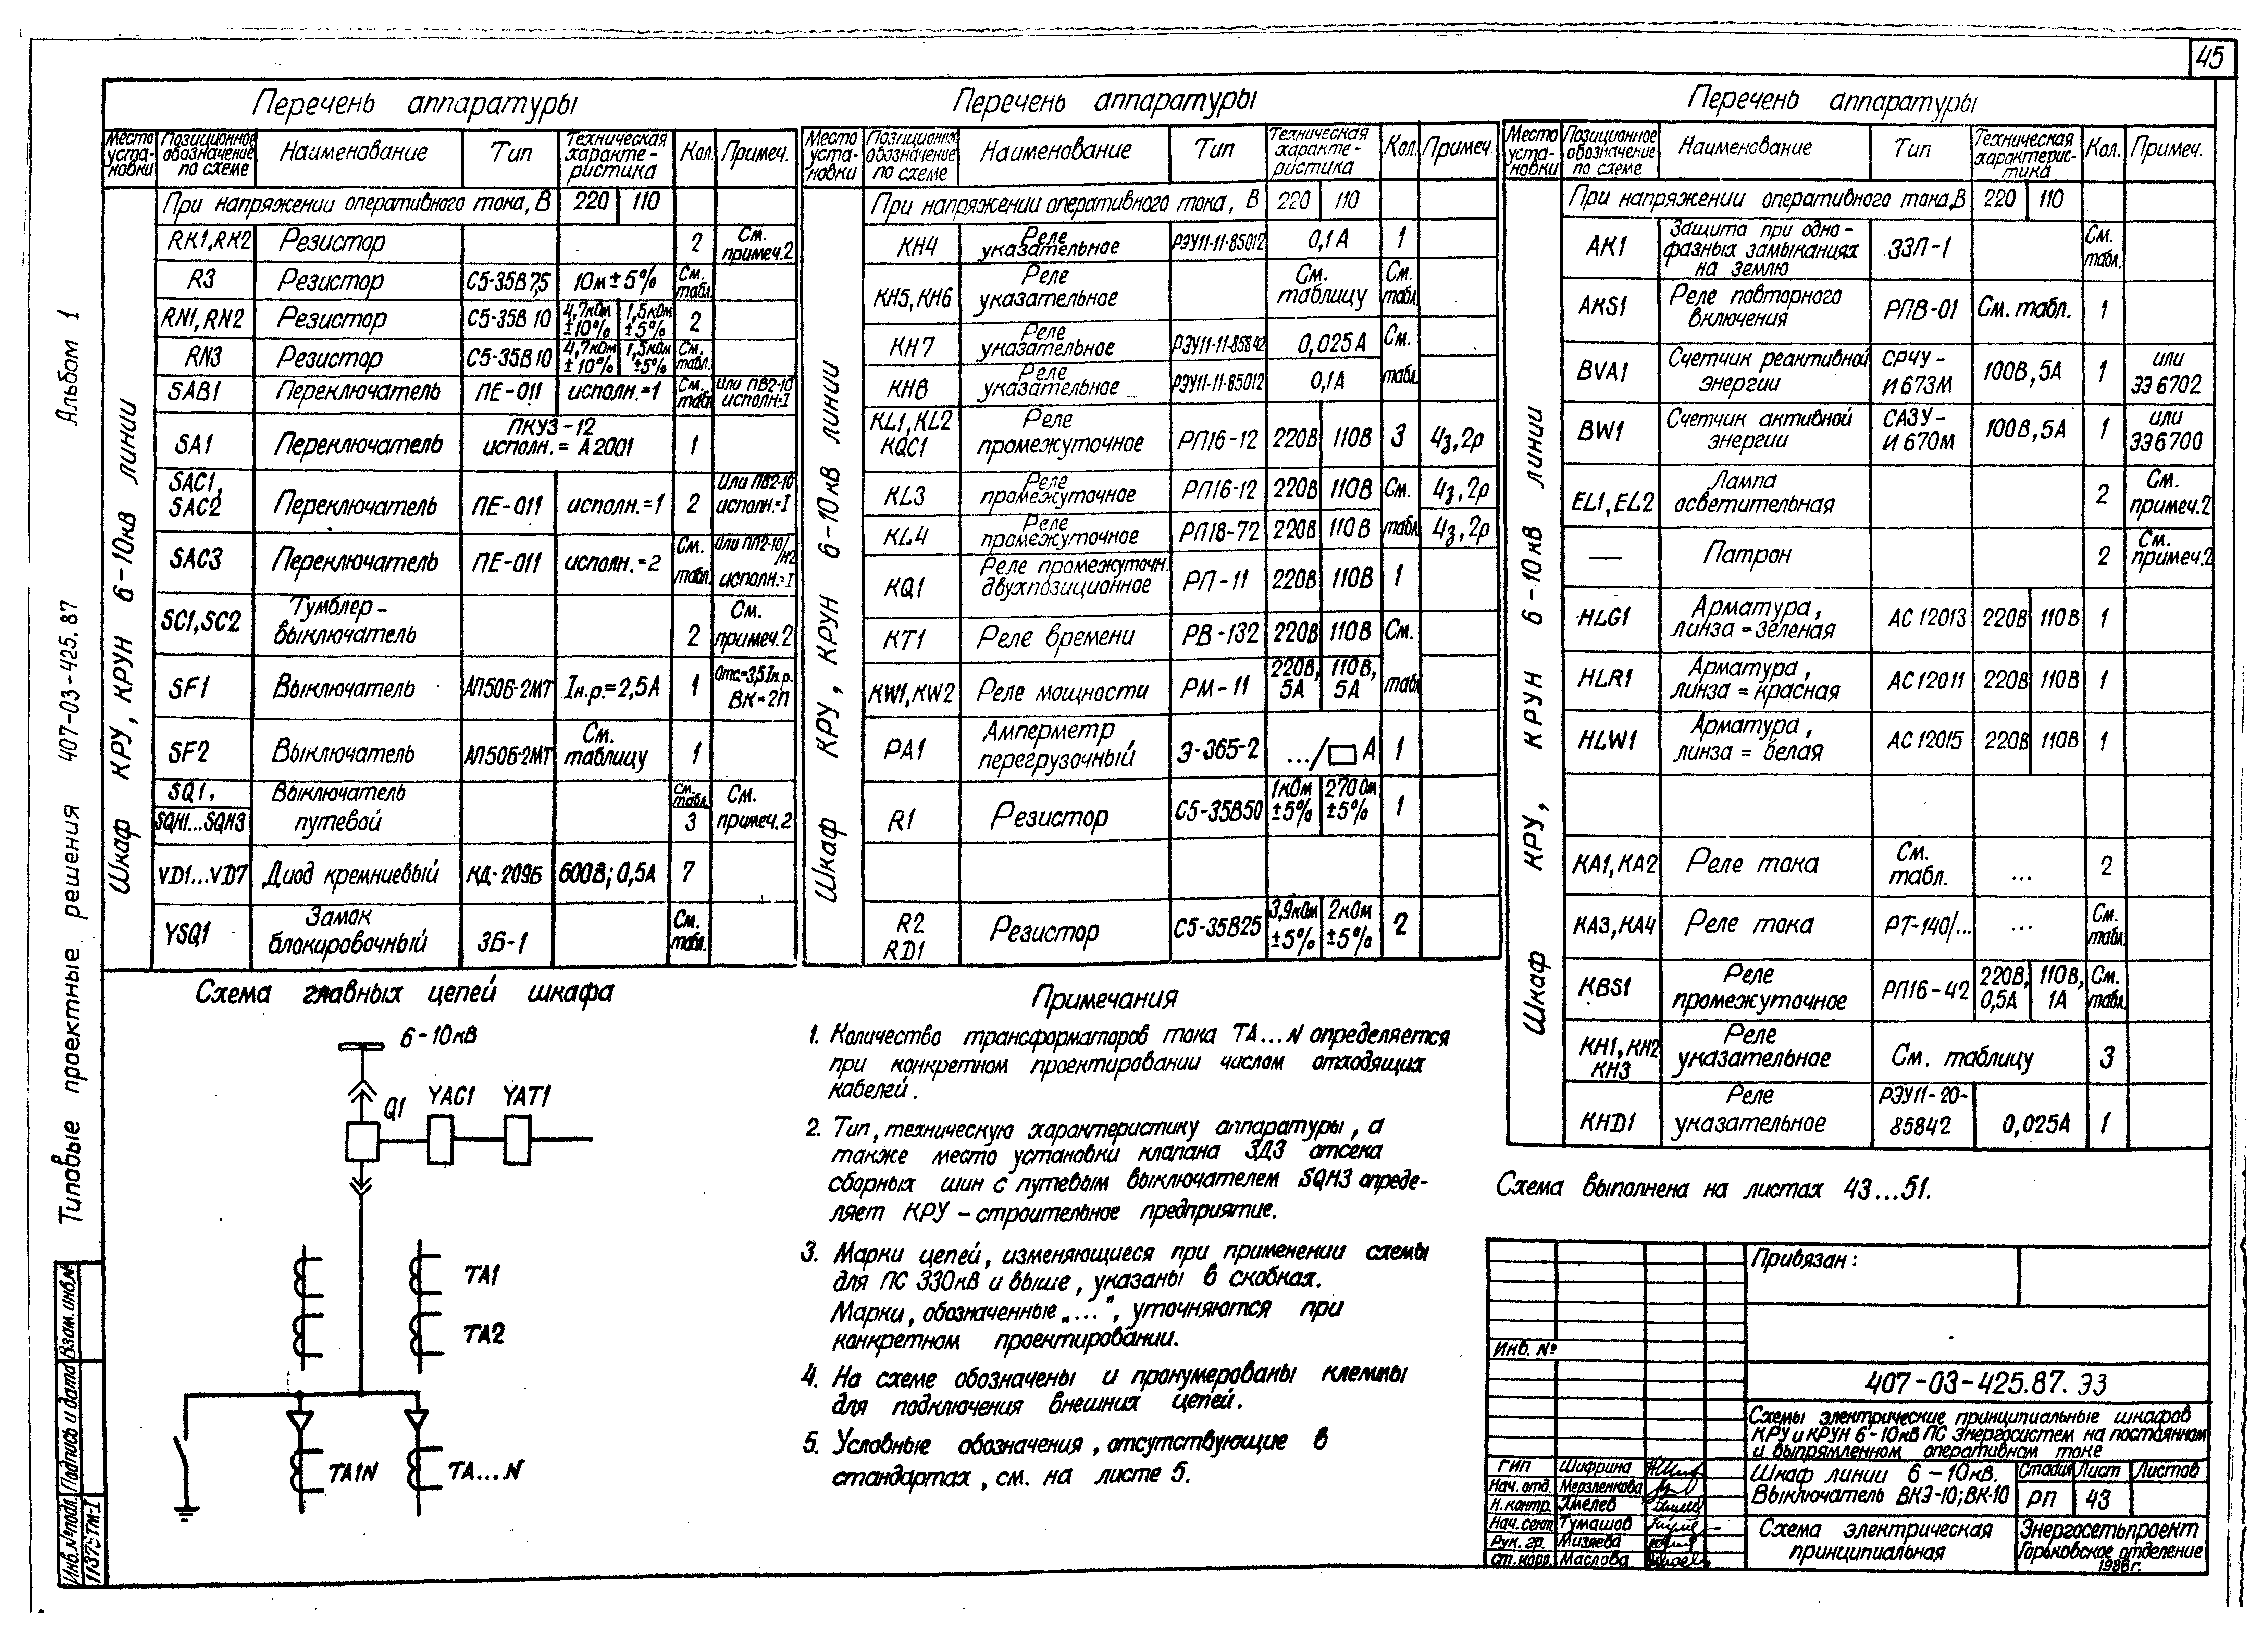 45
Альбом 1
Типовые проектные решения 407-03-425.87
Перечень аппаратуры
Место установки | Позиционное обозначение по схеме | Наименование | Тип | Техническая характеристика | Кол. | Примеч.
Шкаф КРУ, КРУН 6-10кв линии
При напряжении оперативного тока, В | 220 | 110
RK1, RK2 | Резистор | 2 | См. примеч.2
R3 | Резистор | С5-35В 7,5 | 1Ом ± 5% | См. табл.
RN1, RN2 | Резистор | С5-35В 10 | 4,7кОм ±10% | 1,5кОм ±5% | 2
RN3 | Резистор | С5-35В 10 | 4,7кОм ±10% | 1,5кОм ±5% | См. табл.
SAB1 | Переключатель | ПЕ-011 | исполн.=1 | См. табл. | Или ПВ2-10 исполн=I
SA1 | Переключатель | ПКУ3-12 исполн.= А2001 | 1
SAC1, SAC2 | Переключатель | ПЕ-011 | исполн.=1 | 2 | Или ПВ2-10 исполн.=I
SAC3 | Переключатель | ПЕ-011 | исполн.=2 | См. табл. | Или ПП2-10/Н2 исполн.=I
SC1, SC2 | Тумблер-выключатель | 2 | См. примеч.2
SF1 | Выключатель | АП50Б-2МТ | Iн.р.=2,5А | 1 | Отс=3,5Iн.р. ВК=2П
SF2 | Выключатель | АП50Б-2МТ | См. таблицу | 1
SQ1, | Выключатель путевой | См. табл. | См. примеч.2
SQH1...SQH3 | 3
VD1...VD7 | Диод кремниевый | КД-209Б | 600В; 0,5А | 7
YSQ1 | Замок блокировочный | ЗБ-1 | См. табл.
Перечень аппаратуры
Место установки | Позиционное обозначение по схеме | Наименование | Тип | Техническая характеристика | Кол. | Примеч.
Шкаф КРУ, КРУН 6-10кв линии
При напряжении оперативного тока, В | 220 | 110
KH4 | Реле указательное | РЭУ11-11-85012 | 0,1А | 1
KH5, KH6 | Реле указательное | См. таблицу | См. табл.
KH7 | Реле указательное | РЭУ11-11-85842 | 0,025А | См.
KH8 | Реле указательное | РЭУ11-11-85012 | 0,1А | табл.
KL1, KL2 KQC1 | Реле промежуточное | РП16-12 | 220В | 110В | 3 | 4з, 2р
KL3 | Реле промежуточное | РП16-12 | 220В | 110В | См. | 4з, 2р
KL4 | Реле промежуточное | РП18-72 | 220В | 110В | табл | 4з, 2р
KQ1 | Реле промежуточн. двухпозиционное | РП-11 | 220В | 110В | 1
KT1 | Реле времени | РВ-132 | 220В | 110В | См.
KW1, KW2 | Реле мощности | РМ-11 | 220В, 5А | 110В, 5А | табл
PA1 | Амперметр перегрузочный | Э-365-2 | .../□ А | 1
R1 | Резистор | С5-35В50 | 1кОм ±5% | 270Ом ±5% | 1
R2 RD1 | Резистор | С5-35В25 | 3,9кОм ±5% | 2кОм ±5% | 2
Перечень аппаратуры
Место установки | Позиционное обозначение по схеме | Наименование | Тип | Техническая характеристика | Кол. | Примеч.
Шкаф КРУ, КРУН 6-10кв линии
При напряжении оперативного тока, В | 220 | 110
AK1 | Защита при однофазных замыканиях на землю | ЗЗП-1 | См. табл.
AKS1 | Реле повторного включения | РПВ-01 | См. табл. | 1
BVA1 | Счетчик реактивной энергии | СРЧУ-И673М | 100В, 5А | 1 | или ЭЭ6702
BW1 | Счетчик активной энергии | САЗУ-И670М | 100В, 5А | 1 | или ЭЭ6700
EL1, EL2 | Лампа осветительная | 2 | См. примеч.2
— | Патрон | 2 | См. примеч.2
HLG1 | Арматура, линза=зеленая | АС12013 | 220В | 110В | 1
HLR1 | Арматура, линза=красная | АС12011 | 220В | 110В | 1
HLW1 | Арматура, линза = белая | АС12015 | 220В | 110В | 1
KA1, KA2 | Реле тока | См. табл. | ... | 2
KA3, KA4 | Реле тока | РТ-140/... | ... | См. табл
KBS1 | Реле промежуточное | РП16-42 | 220В, 0,5А | 110В, 1А | См. табл.
KH1, KH2 KH3 | Реле указательное | См. таблицу | 3
KHD1 | Реле указательное | РЭУ11-20-85842 | 0,025А | 1
Схема главных цепей шкафа
6-10кВ
Q1 YAC1 YAT1
TA1
TA2
TA1N TA...N
Примечания
1. Количество трансформаторов тока ТА...N определяется
при конкретном проектировании числом отходящих
кабелей.
2. Тип, техническую характеристику аппаратуры, а
также место установки клапана ЗДЗ отсека
сборных шин с путевым выключателем SQH3 опреде-
ляет КРУ - строительное предприятие.
3. Марки цепей, изменяющиеся при применении схемы
для ПС 330кВ и выше, указаны в скобках.
Марки, обозначенные „...", уточняются при
конкретном проектировании.
4. На схеме обозначены и пронумерованы клеммы
для подключения внешних цепей.
5. Условные обозначения, отсутствующие в
стандартах, см. на листе 5.
Схема выполнена на листах 43...51.
Привязан:
Инв. №
407-03-425.87. ЭЗ
Схемы электрические принципиальные шкафов
КРУ и КРУН 6-10кВ ПС энергосистем на постоянном
и выпрямленном оперативном токе
ГИП Шифрина
Нач. отд. Мерзленкова
Н. контр. Хмелев
Нач. сект. Тумашов
Рук. гр. Мизяева
Ст. корр. Маслова
Шкаф линии 6-10кв.
Выключатель ВКЭ-10; ВК-10
Стадия Лист Листов
РП 43
Схема электрическая
принципиальная
Энергосетьпроект
Горьковское отделение
1986г.
Инв.№ подл. Подпись и дата Взам. инв.№
11375тм-I